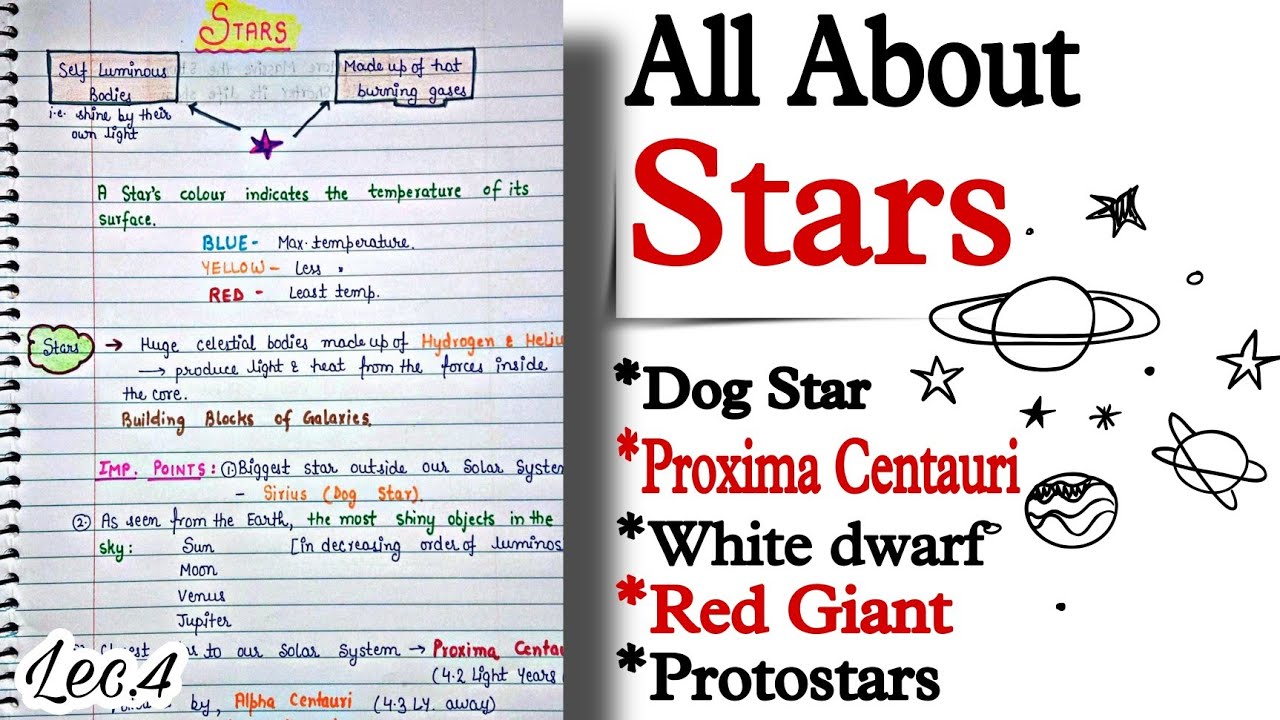 STARS
Self Luminous
Bodies
i.e. shine by their
own light
Made up of hot
burning gases
A Star's colour indicates the temperature of its
surface.
BLUE - Max. temperature.
YELLOW - Less "
RED - Least temp.
Stars
→ Huge celestial bodies made up of Hydrogen & Heliu
→ produce light & heat from the forces inside
the core.
Building Blocks of Galaxies.
IMP. POINTS: ① Biggest star outside our Solar System
- Sirius (Dog Star).
② As seen from the Earth, the most shiny objects in the
sky: Sun [in decreasing order of luminos
Moon
Venus
Jupiter
to our Solar System → Proxima Centau
(4.2 Light Years
by, Alpha Centauri (4.3 LY. away)
Lec.4
All About
Stars
*Dog Star
*Proxima Centauri
*White dwarf
*Red Giant
*Protostars